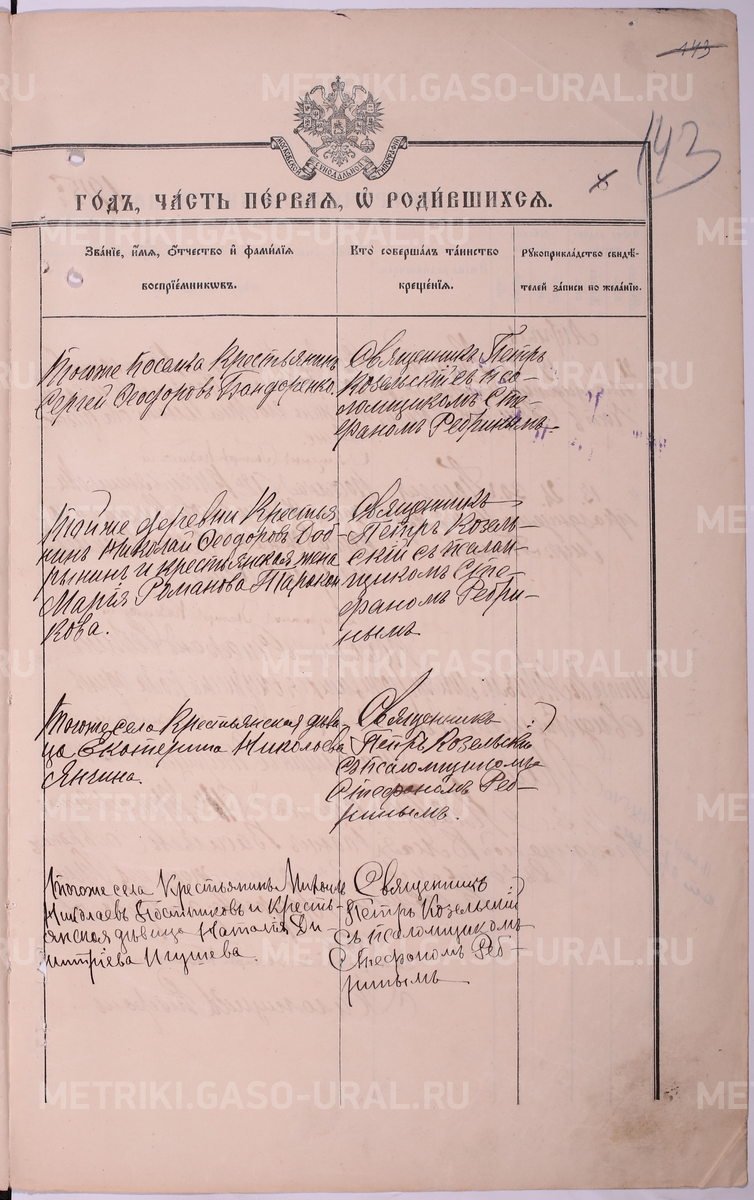 143
143
МОСКОВСКАЯ СѴНОДАЛЬНАЯ ТИПОГРАФІЯ
ГОДЪ, ЧАСТЬ ПЕРВАЯ, Ѿ РОДИВШИХСЯ.
Званіе, имя, отчество и фамилія
воспріемниковъ.
Кто совершалъ таинство
крещенія.
Рукоприкладство свидѣ-
телей записи по желанію.
Тогоже поселка Крестьянинъ
Сергей Ѳеодоровъ Бондаренко.
Священникъ Петръ
Козельскій съ псо-
ломщикомъ Сте-
фаномъ Ребринымъ
Тойже деревни Крестья
нинъ Николай Ѳеодоровъ Доб-
рынинъ и крестьянская жена
Марія Романова Таракан
кова.
Священникъ
Петръ Козель-
скій съ псалом-
щикомъ Сте-
фаномъ Ребри-
нымъ
Тогоже села Крестьянская дѣви
ца Екатерина Николаева
Янгина.
Священникъ
Петръ Козельскій
съ псаломщикомъ
Стефаномъ Реб-
ринымъ.
Тогоже села Крестьянинъ Миронъ
Николаевъ Постниковъ и Кресть-
янская дѣвица Наталія Ди
митріева Ишцева.
Священникъ
Петръ Козельскій
съ псаломщикомъ
Стефаномъ Реб-
ринымъ
METRIKI.GASO-URAL.RU